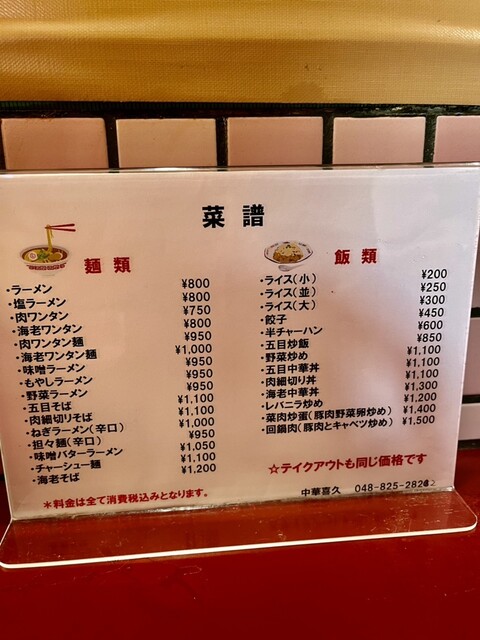 菜譜
麺類
・ラーメン ¥800
・塩ラーメン ¥800
・肉ワンタン ¥750
・海老ワンタン ¥800
・肉ワンタン麺 ¥950
・海老ワンタン麺 ¥1,000
・味噌ラーメン ¥950
・もやしラーメン ¥950
・野菜ラーメン ¥950
・五目そば ¥1,100
・肉細切りそば ¥1,100
・ねぎラーメン(辛口) ¥1,000
・担々麺(辛口) ¥950
・味噌バターラーメン ¥1,050
・チャーシュー麺 ¥1,100
・海老そば ¥1,200
＊料金は全て消費税込みとなります。
飯類
・ライス(小) ¥200
・ライス(並) ¥250
・ライス(大) ¥300
・餃子 ¥450
・半チャーハン ¥600
・五目炒飯 ¥850
・野菜炒め ¥1,100
・五目中華丼 ¥1,100
・肉細切り丼 ¥1,100
・海老中華丼 ¥1,300
・レバニラ炒め ¥1,200
・菜肉炒蛋(豚肉野菜卵炒め) ¥1,400
・回鍋肉(豚肉とキャベツ炒め) ¥1,500
☆テイクアウトも同じ価格です
中華喜久